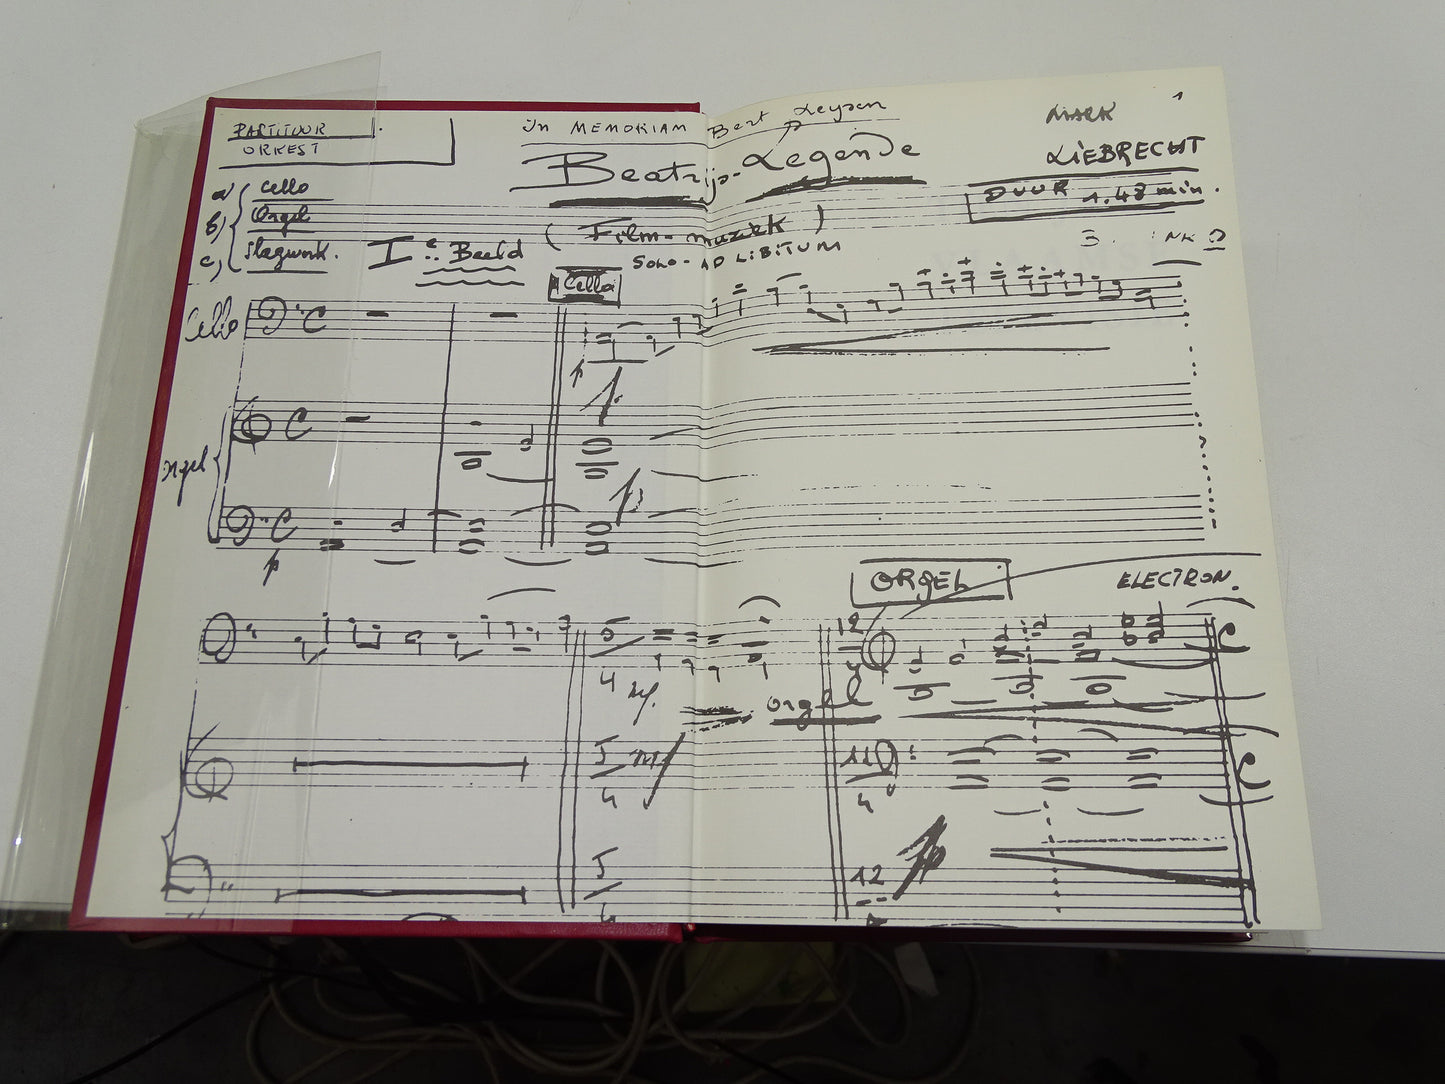 PARTITUUR
ORKEST
In MEMORIAM Bert Leysen
MARK
LIEBRECHT
1
Beatrijs-Legende
a) Cello
b) Orgel
c) Slagwerk.
DUUR 1.48 min.
(Film-muziek)
Ie: Beeld
SOLO-AD LIBITUM
Cello
Cello
p
p
Orgel
p
p
ORGEL
ELECTRON.
5
4
mf.
12
4
orgel
5
4
mf
12
4
5
4
12
fp